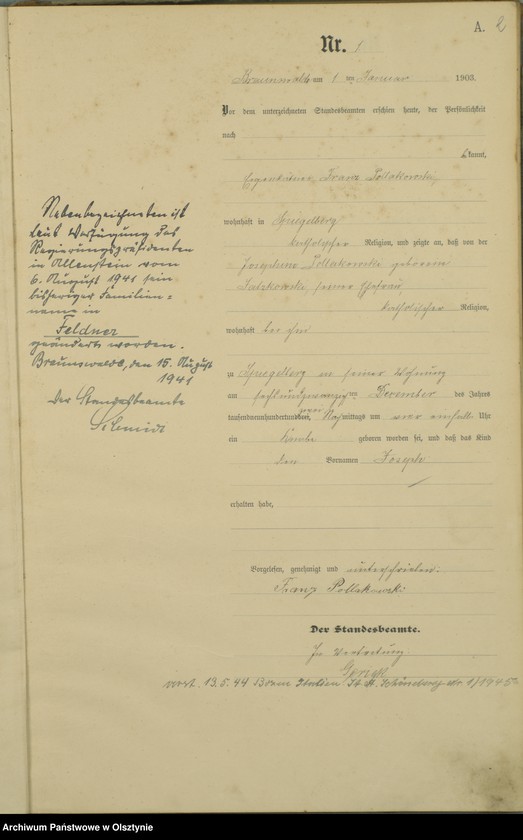 A. 2
Nr. 1
Braunswalde am 1 ten Januar 1903.
Vor dem unterzeichneten Standesbeamten erschien heute, der Persönlichkeit
nach
kannt,
Eigenkätner Franz Pollakowski
wohnhaft in Spiegelberg
katholischer Religion, und zeigte an, daß von der
Josephine Pollakowski geborene
seiner Ehefrau
katholischer Religion,
wohnhaft bei ihm
zu Spiegelberg in seiner Wohnung
am sechsundzwanzigsten Dezember des Jahres
tausendneunhundertundzwei, Nachmittags um vier einhalb Uhr
ein Knabe geboren worden sei, und daß das Kind
den Vornamen Joseph
erhalten habe,
Vorgelesen, genehmigt und unterschrieben:
Franz Pollakowski
Der Standesbeamte.
In Vertretung
Nebenbezeichneten ist
laut Verfügung des
Regierungspräsidenten
in Allenstein vom
6. August 1941 sein
bisheriger Familien=
name in
Feldner
geändert worden.
Braunswalde, den 15. August
1941
Der Standesbeamte
Schmidt
13.5.44 Italien St. A. Schöneberg Nr.
Archiwum Państwowe w Olsztynie